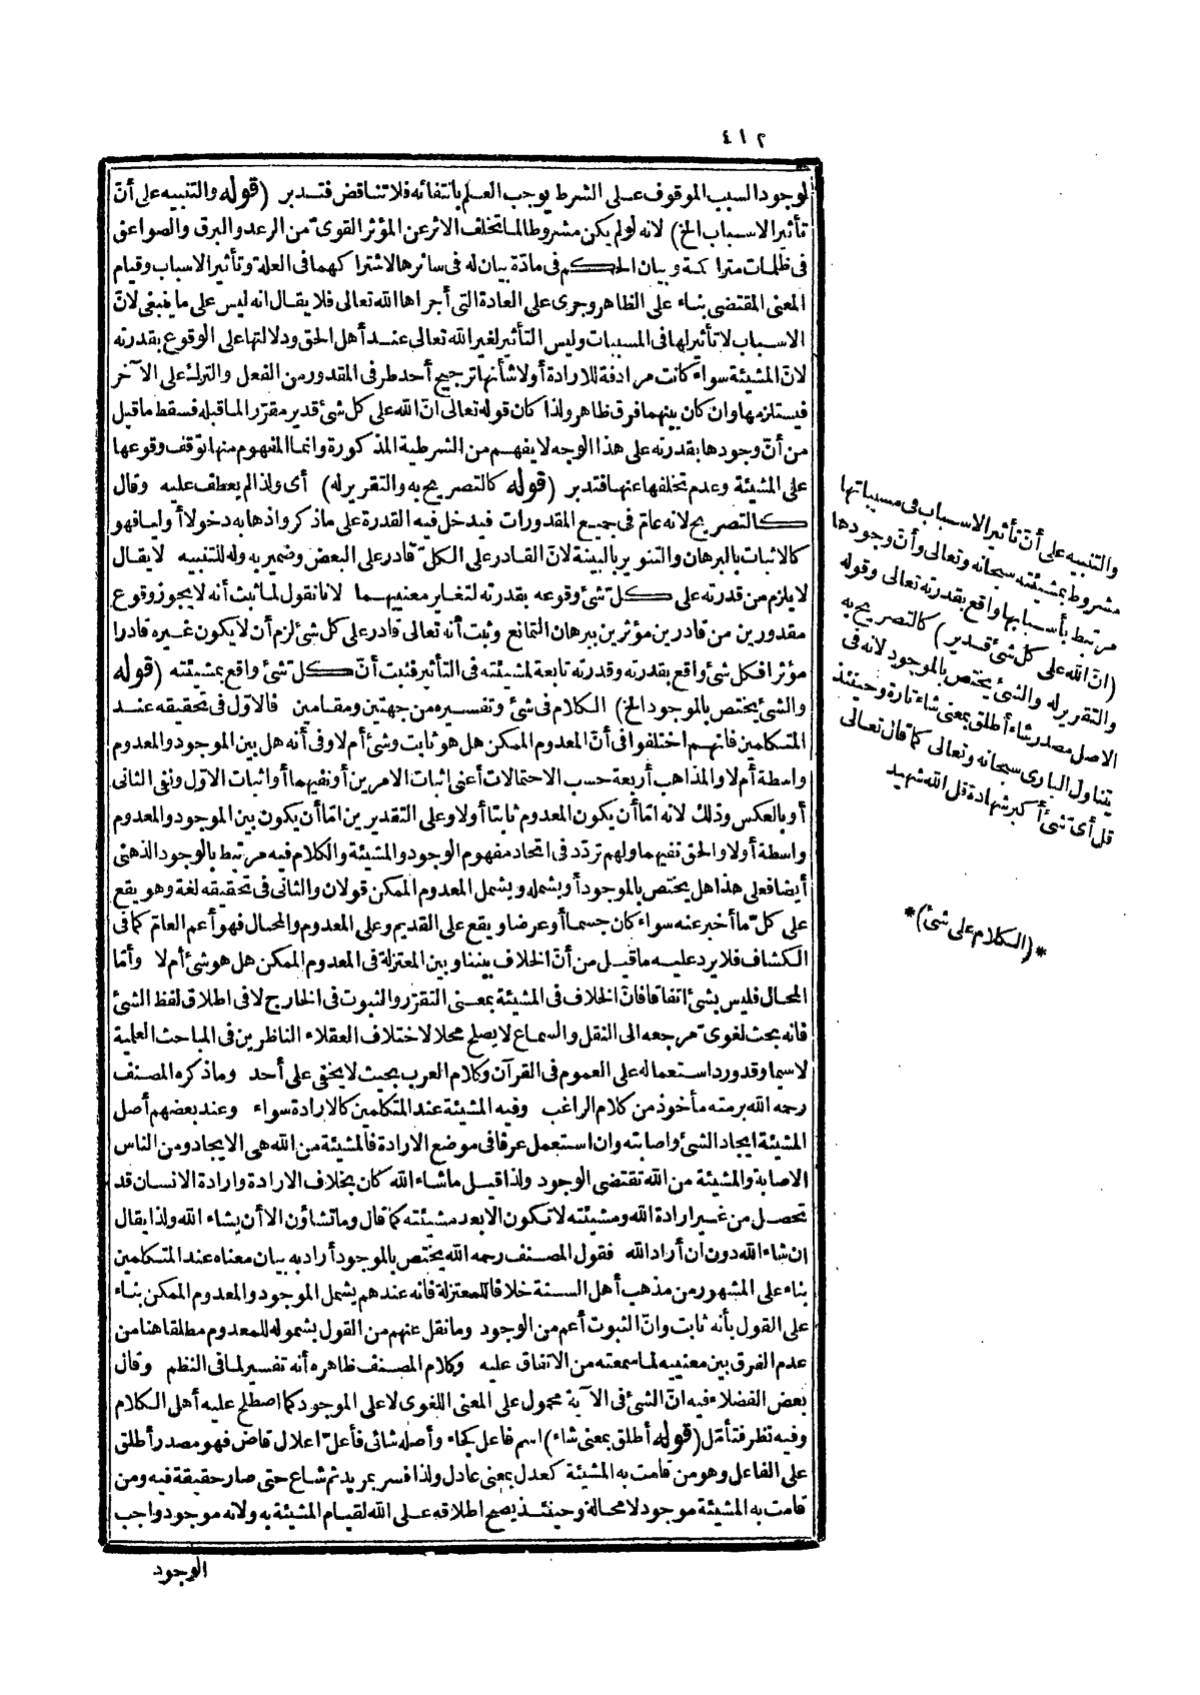 ٤١٢
لوجود السبب الموقوف على الشرط يوجب العلم بانتفائه فلا تناقض فتدبر (قوله والتنبيه على أنّ
تأثير الاسباب الخ) لانه لو لم يكن مشروطا لما تخلف الاثر عن المؤثر القوى من الرعد والبرق والصواعق
فى ظلمات متراكمة وبيان الحكم فى مادّة بيان له فى سائرها لاشتراكهما فى العلة وتأثير الاسباب وقيام
المعنى المقتضى بناء على الظاهر وجرى على العادة التى أجراها الله تعالى فلا يقال انه ليس على ما ينبغى لانّ
الاسباب لا تأثير لها فى المسببات وليس التأثير لغير الله تعالى عند أهل الحق ودلالتها على الوقوع بقدرته
لانّ المشيئة سواء كانت مرادفة للارادة أولا شأنها ترجيح أحد طرفى المقدور من الفعل والترك على الآخر
فيستلزمها وان كان بينهما فرق ظاهر ولذا كان قوله تعالى انّ الله على كل شئ قدير مقرّرا لما قبله فسقط ما قيل
من أنّ وجودها بقدرته على هذا الوجه لا يفهم من الشرطية المذكورة وانما المفهوم منها توقف وقوعها
على المشيئة وعدم تخلفها عنها فتدبر (قوله كالتصريح به والتقرير له) أى ولذا لم يعطف عليه وقال
كالتصريح لانه عامّ فى جميع المقدورات فيدخل فيه القدرة على ما ذكر واذهابه دخولا أوليا فهو
كالاثبات بالبرهان والتنوير بالبينة لانّ القادر على الكلّ قادر على البعض وضمير به وله للتنبيه لا يقال
لا يلزم من قدرته على كلّ شئ وقوعه بقدرته لتغاير معنييهما لانا نقول لما ثبت أنه لا يجوز وقوع
مقدورين من قادرين مؤثرين ببرهان التمانع وثبت أنه تعالى قادر على كل شئ لزم أن لا يكون غيره قادرا
مؤثرا فكل شئ واقع بقدرته وقدرته تابعة لمشيئته فى التأثير فثبت أنّ كلّ شئ واقع بمشيئته (قوله
والشئ يختص بالموجود الخ) الكلام فى شئ وتفسيره من جهتين ومقامين فالاوّل فى تحقيقه عند
المتكلمين فانهم اختلفوا فى أنّ المعدوم الممكن هل هو ثابت وشئ أم لا وفى أنه هل بين الموجود والمعدوم
واسطة أم لا والمذاهب أربعة حسب الاحتمالات أعنى اثبات الامرين أو نفيهما أو اثبات الاوّل ونفى الثانى
أو بالعكس وذلك لانه امّا أن يكون المعدوم ثابتا أولا وعلى التقديرين امّا أن يكون بين الموجود والمعدوم
واسطة أولا والحق نفيهما ولهم تردّد فى اتحاد مفهوم الوجود والمشيئة والكلام فيه مرتبط بالوجود الذهنى
أيضا فعلى هذا هل يختص بالموجود أو يشمله ويشمل المعدوم الممكن قولان والثانى فى تحقيقه لغة وهو يقع
على كلّ ما أخبر عنه سواء كان جسما أو عرضا ويقع على القديم وعلى المعدوم والمحال فهو أعم العامّ كما فى
الكشاف فلا يرد عليه ما قيل من أنّ الخلاف بيننا وبين المعتزلة فى المعدوم الممكن هل هو شئ أم لا وأمّا
المحال فليس بشئ اتفاقا فانّ الخلاف فى المشيئة بمعنى التقرّر والثبوت فى الخارج لا فى اطلاق لفظ الشئ
فانه بحث لغوى مرجعه الى النقل والسماع لا يصلح محلا لاختلاف العقلاء الناظرين فى المباحث العلمية
لا سيما وقد ورد استعماله على العموم فى القرآن وكلام العرب بحيث لا يخفى على أحد وما ذكره المصنف
رحمه الله برمته مأخوذ من كلام الراغب وفيه المشيئة عند المتكلمين كالارادة سواء وعند بعضهم أصل
المشيئة ايجاد الشئ واصابته وان استعمل عرفا فى موضع الارادة فالمشيئة من الله هى الايجاد ومن الناس
الاصابة والمشيئة من الله تقتضى الوجود ولذا قيل ما شاء الله كان بخلاف الارادة وارادة الانسان قد
تحصل من غير ارادة الله ومشيئته لا تكون الا بعد مشيئته كما قال وما تشاؤن الا أن يشاء الله ولذا يقال
ان شاء الله دون ان أراد الله فقول المصنف رحمه الله يختص بالموجود أراد به بيان معناه عند المتكلمين
بناء على المشهور من مذهب أهل السنة خلافا للمعتزلة فانه عندهم يشمل الموجود والمعدوم الممكن بناء
على القول بأنه ثابت وانّ الثبوت أعم من الوجود وما نقل عنهم من القول بشموله للمعدوم مطلقا هنا من
عدم الفرق بين معنييه لما سمعته من الاتفاق عليه وكلام المصنف ظاهره أنه تفسير لما فى النظم وقال
بعض الفضلاء فيه انّ الشئ فى الآية محمول على المعنى اللغوى لا على الموجود كما اصطلح عليه أهل الكلام
وفيه نظر فتأمّل (قوله أطلق بمعنى شاء) اسم فاعل كجاء وأصله شائى فأعلّ اعلال قاض فهو مصدر أطلق
على الفاعل وهو من قامت به المشيئة كعدل بمعنى عادل ولذا فسر بمريد ثم شاع حتى صار حقيقة فيه ومن
قامت به المشيئة موجود لا محالة وحينئذ يصح اطلاقه على الله لقيام المشيئة به ولانه موجود واجب
الوجود
والتنبيه على أنّ تأثير الاسباب فى مسبباتها
مشروط بمشيئته سبحانه وتعالى وأنّ وجودها
مرتبط بأسبابها واقع بقدرته تعالى وقوله
(انّ الله على كل شئ قدير) كالتصريح به
والتقرير له والشئ يختص بالموجود لانه فى
الاصل مصدر شاء أطلق بمعنى شاء تارة وحينئذ
يتناول البارى سبحانه وتعالى كما قال تعالى
قل أىّ شئ أكبر شهادة قل الله شهيد
*(الكلام على شئ)*